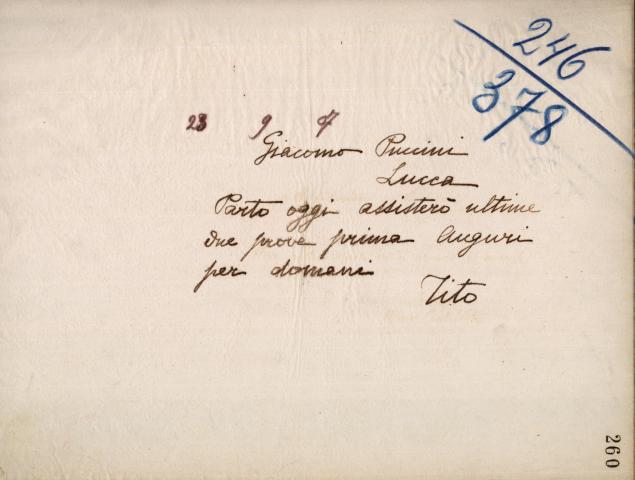 246
378
23 9 7
Giacomo Puccini
Lucca
Parto oggi assisterò ultime
due prove prima Auguri
per domani
Tito
260